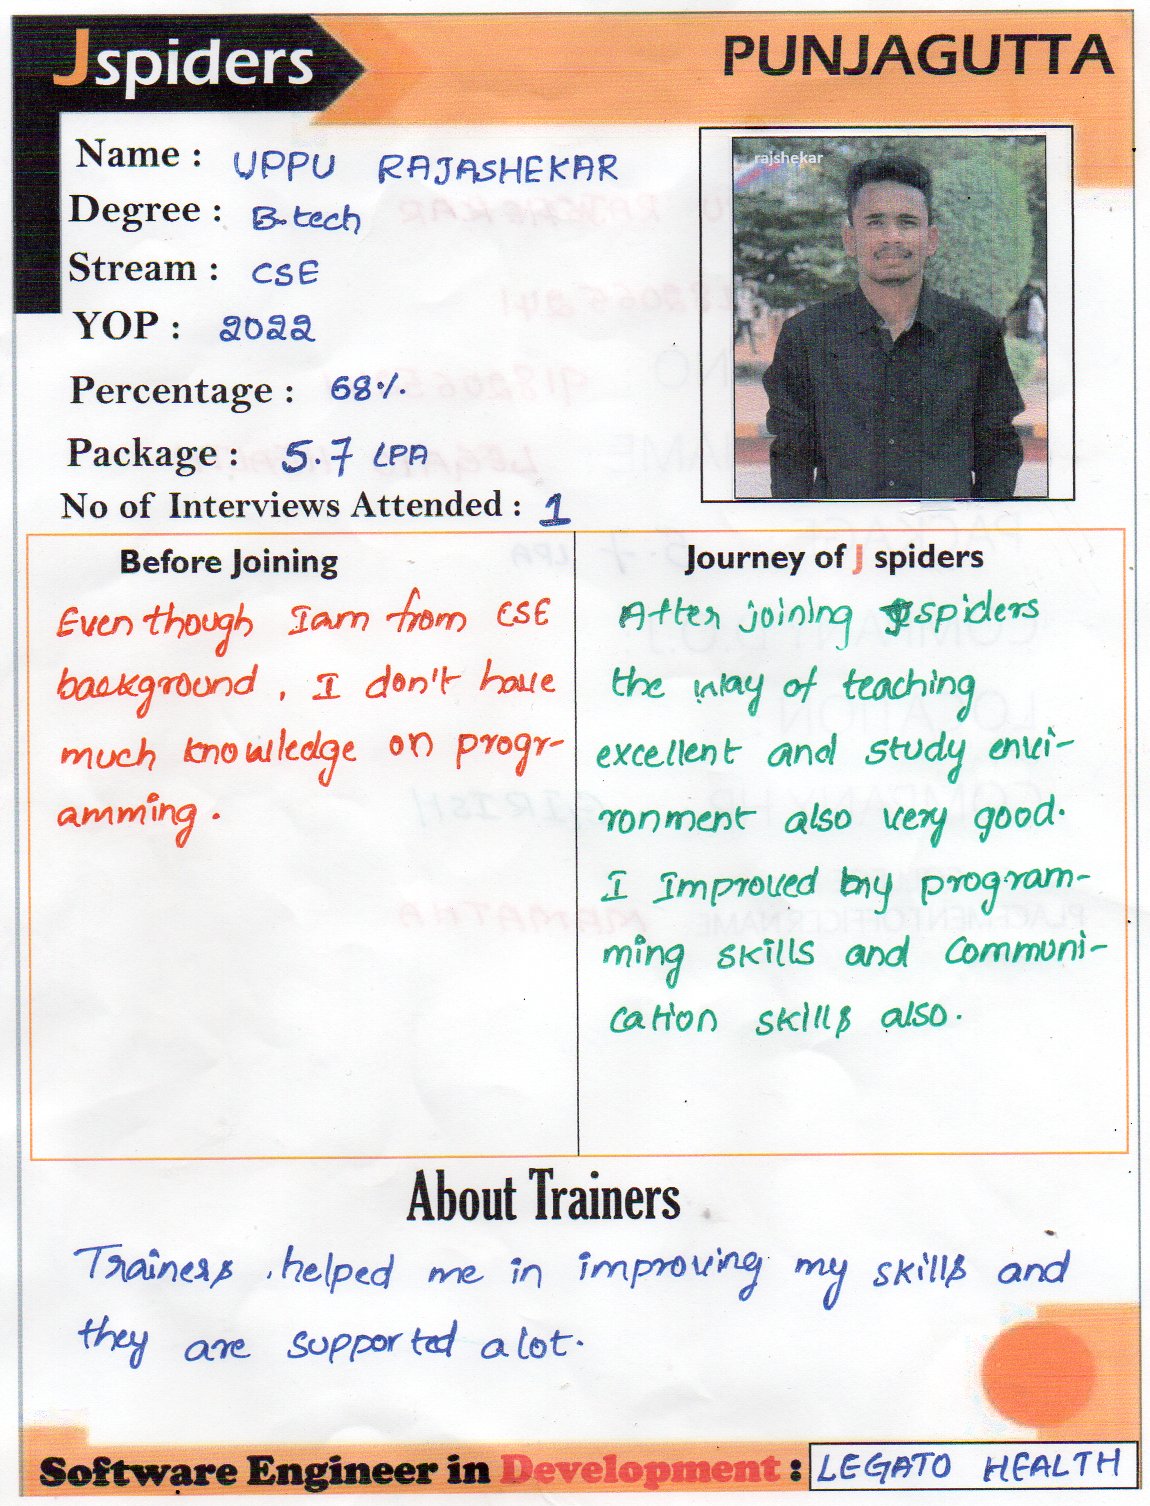 Jspiders
PUNJAGUTTA
Name : UPPU RAJASHEKAR
rajshekar
Degree : B.tech
Stream : CSE
YOP : 2022
Percentage : 68%
Package : 5.7 LPA
No of Interviews Attended : 1
Before Joining
Even though I am from CSE
background, I don't have
much knowledge on progr-
amming.
Journey of J spiders
After joining Jspiders
the way of teaching
excellent and study envi-
ronment also very good.
I Improved my program-
ming skills and communi-
cation skills also.
About Trainers
Trainers helped me in improving my skills and
they are supported a lot.
Software Engineer in Development : LEGATO HEALTH